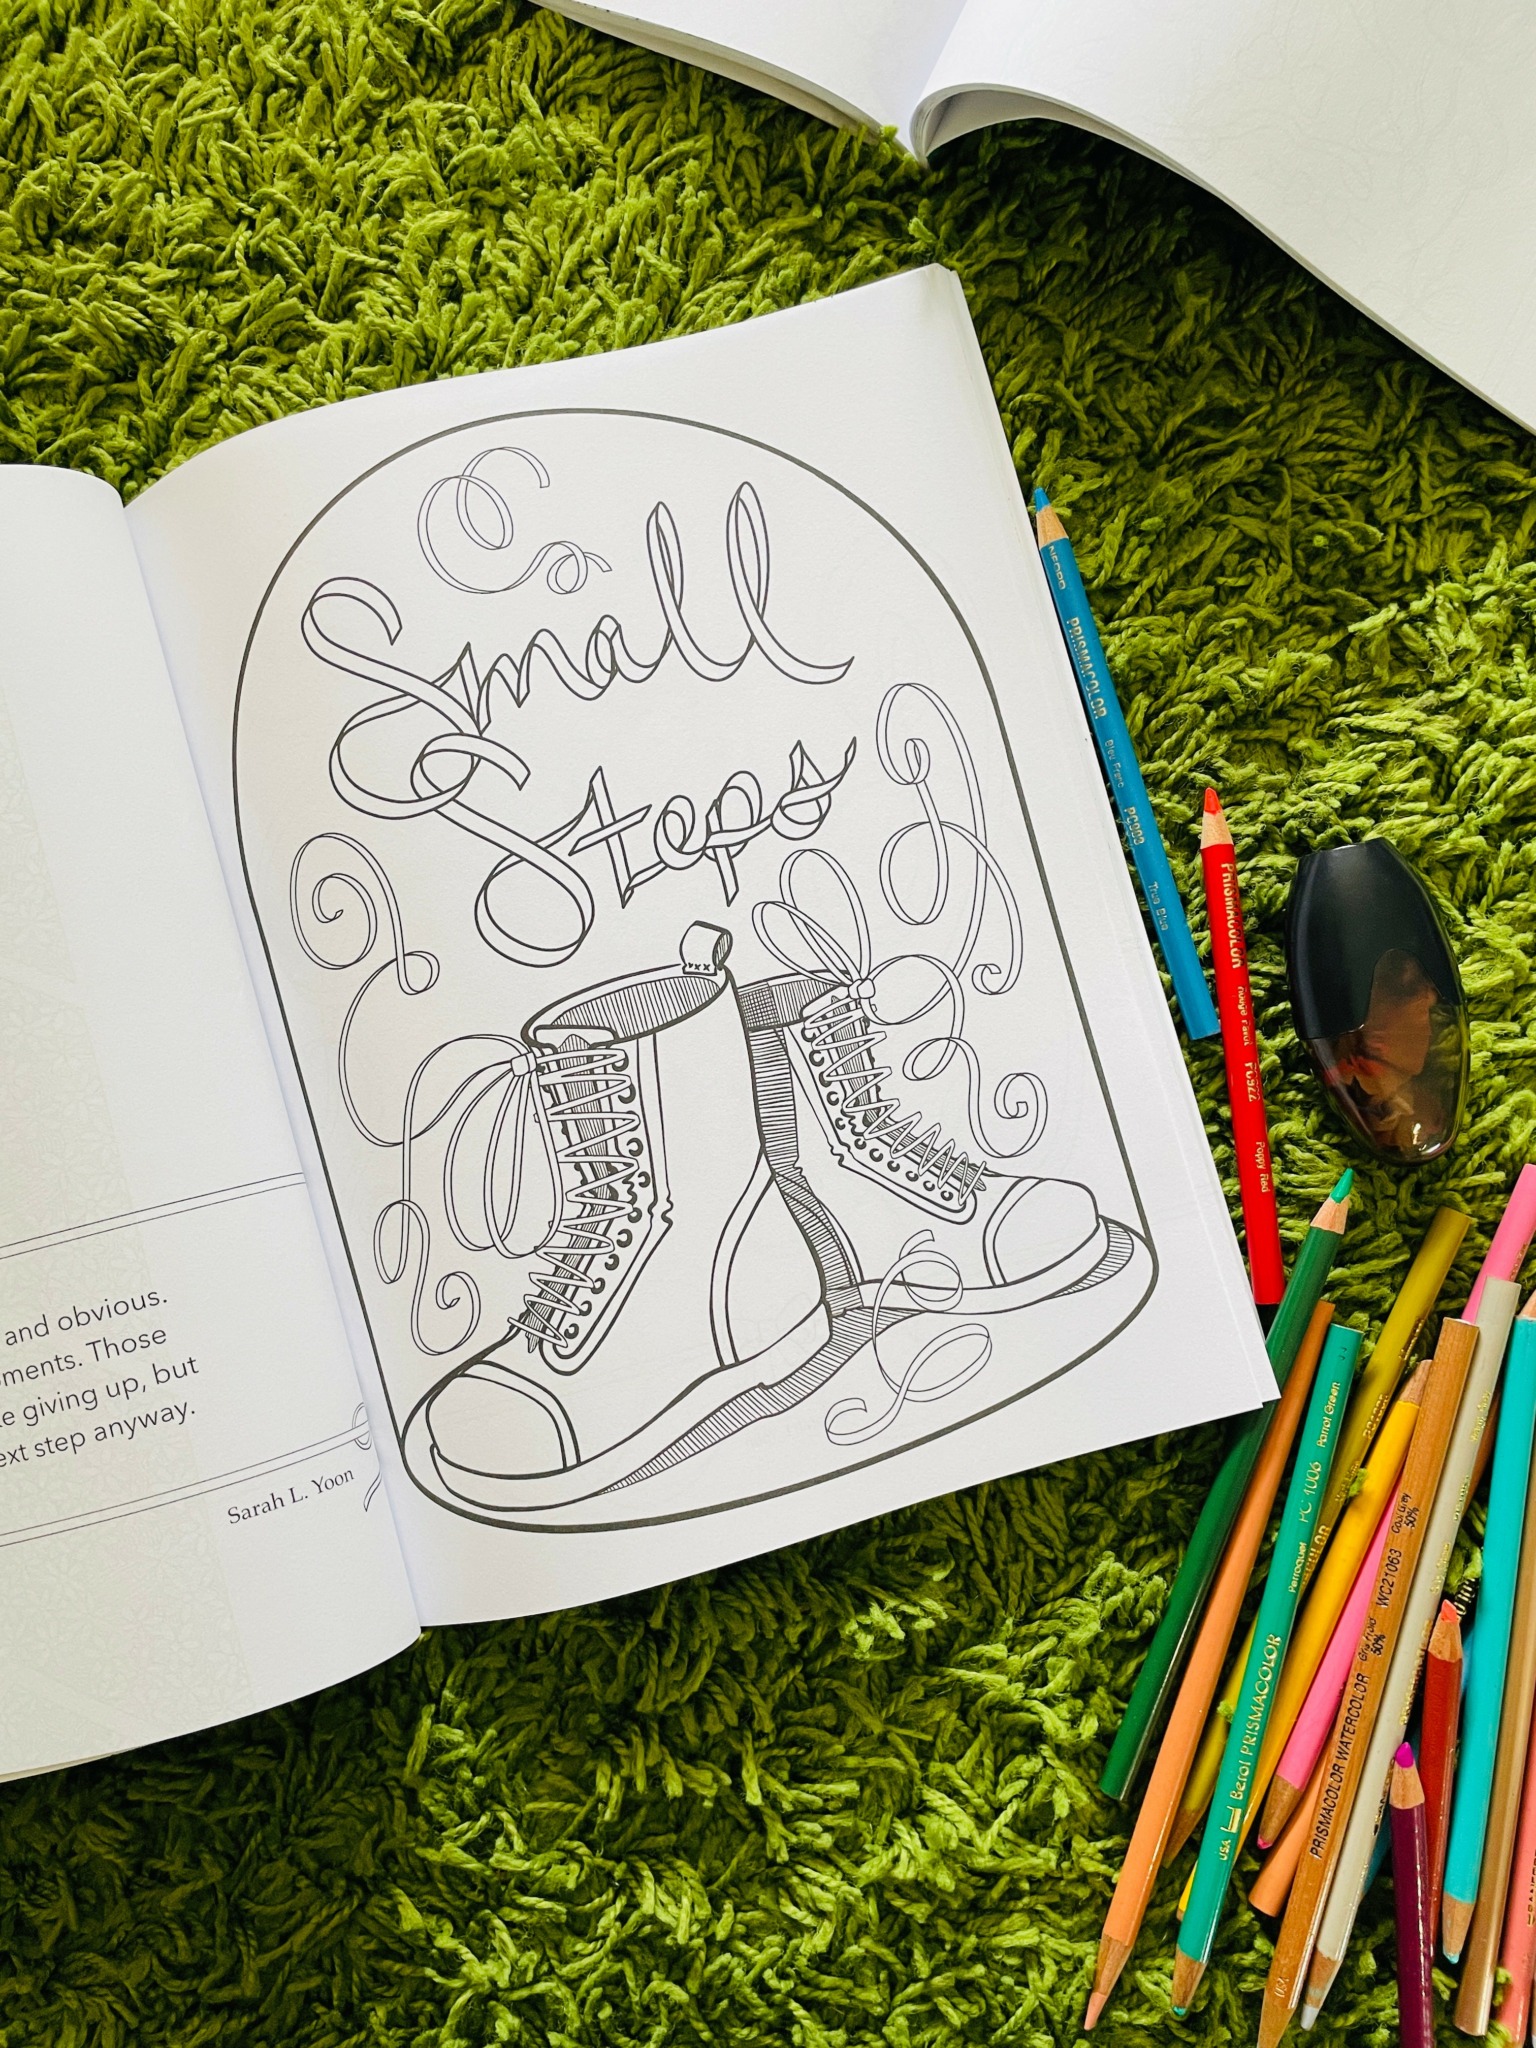 Small
Steps
and obvious.
ments. Those
e giving up, but
ext step anyway.
Sarah L. Yoon
PRISMACOLOR Bleu Franc PC903 True Blue
PRISMACOLOR PC922 Poppy Red
USA Berol PRISMACOLOR Perroquet PC 1006 Parrot Green
USA PRISMACOLOR WATERCOLOR Gris Froid 50% WC21063 Cool Grey 50%